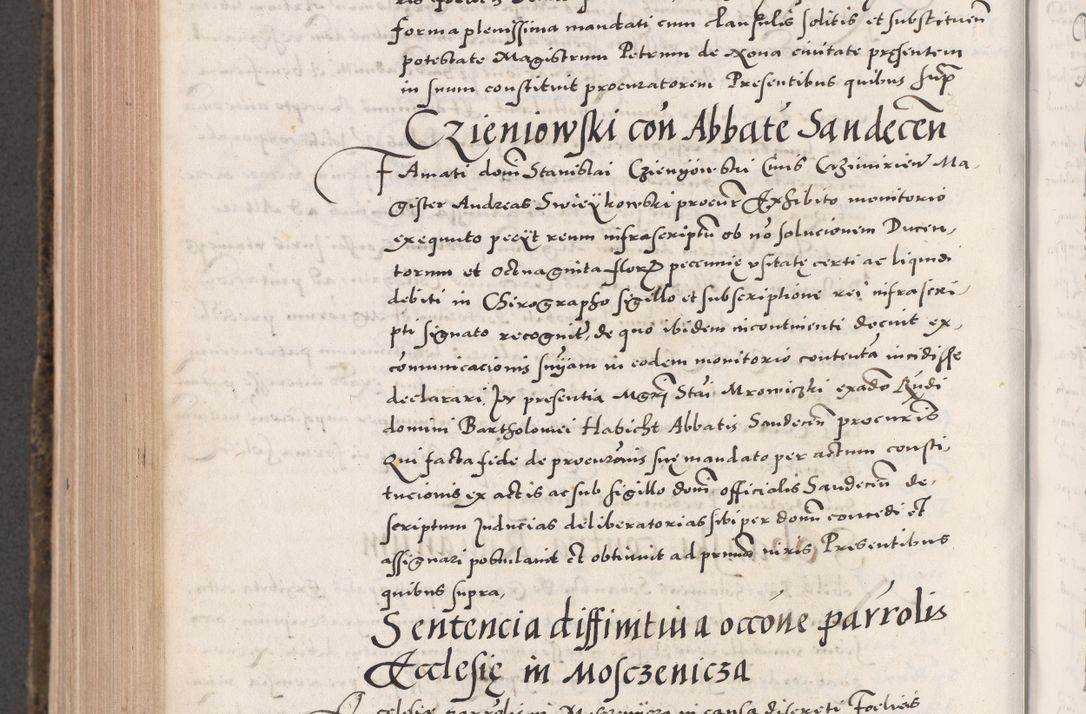 forma plenissima mandati cum clausulis solitis et substituen
potestate Magistrum Petrum de Noua ciuitate presentem
in suum constituit procuratorem Presentibus quibus sup
Czieniowski con Abbate Sandecen
Famati domi Stanislai Czienyowski Ciuis Cazimirien Ma-
gister Andreas Swieykowski procur Exhibito monitorio
exequuto pecyt reum infrascriptum ob no solucionem Ducen-
torum et octuaginta flor pecunię vsitatę certi ac liquidi
debiti in Chirographo sigello et subscriptione rei infrascri-
pti signato recognit, de quo ibidem incontinenti docuit ex-
comunicacionis snyam in eodem monitorio contenta incidisse
declarari, In presentia Mgri Stai Mrowiczki exado Rudi
domini Bartholomei Habicht Abbatis Sandecen procuris
Qui facta fide de procuronis suę mandato per actum consti-
tucionis ex actis ac sub sigillo domi officialis Sandecen de-
scriptum Inducias deliberatorias sibi per domu concedi et
assignari postulauit Et obtinuit ad primam iuris Presentibus
quibus supra,
Sentencia diffinitiua occone parrolis
Ecclesię in Mosczenicza